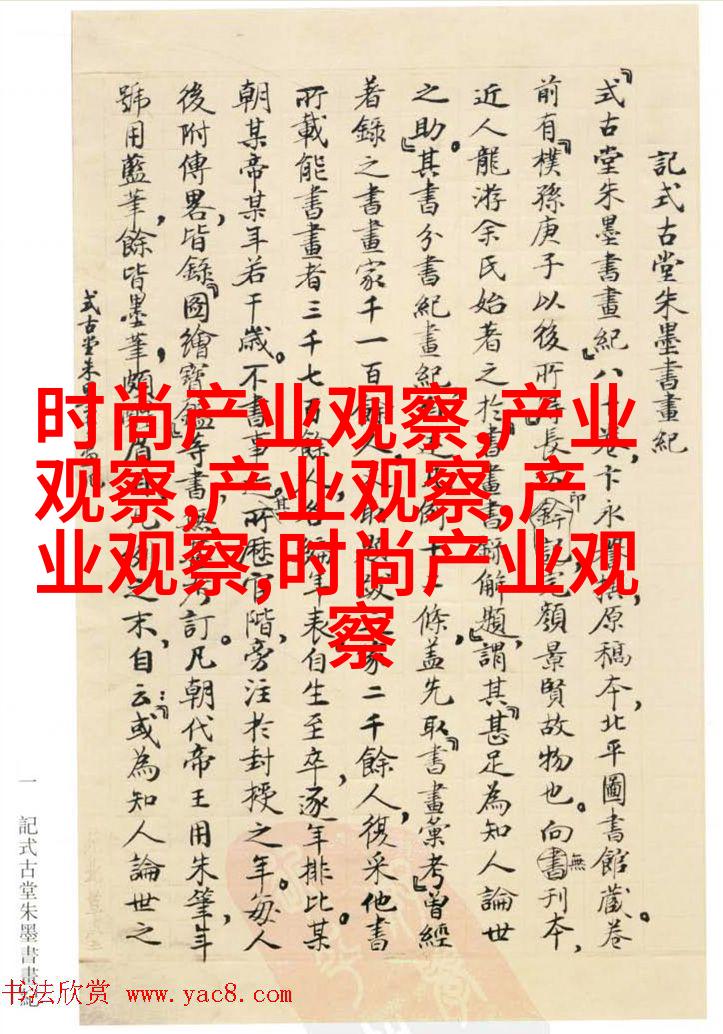 記式古堂朱墨書畫紀
『式古堂朱墨書畫紀』八十卷,卞永譽撰,原稿本,北平圖書館藏。卷
前有『樸孫庚子以後所得』長方印記,完顏景賢故物也。向無刊本,
近人龍游余氏始著之於『書畫書錄解題』,謂其『甚足為知人論世
之助』。其書分書紀畫紀
條,蓋先取『書畫彙考』曾經
著錄之書畫家千一百餘人,
二千餘人,復采他書
所載能書畫者三千七百餘人,各編年表,自生至卒,逐年排比,某
朝某帝某年若干歲。不書事,其所歷官階,旁注於封授之年。每人
後附傳畧,皆錄『圖繪寶鑑』等書,
訂。凡朝代帝王用朱筆,年
號用藍筆,餘皆墨筆,頗
之末,自云:『或為知人論世之
式古堂朱
一 記式古堂朱墨書畫紀
时尚产业观察,产业
观察,产业观察,产
业观察,时尚产业观
察
书法欣赏 www.yac8.com